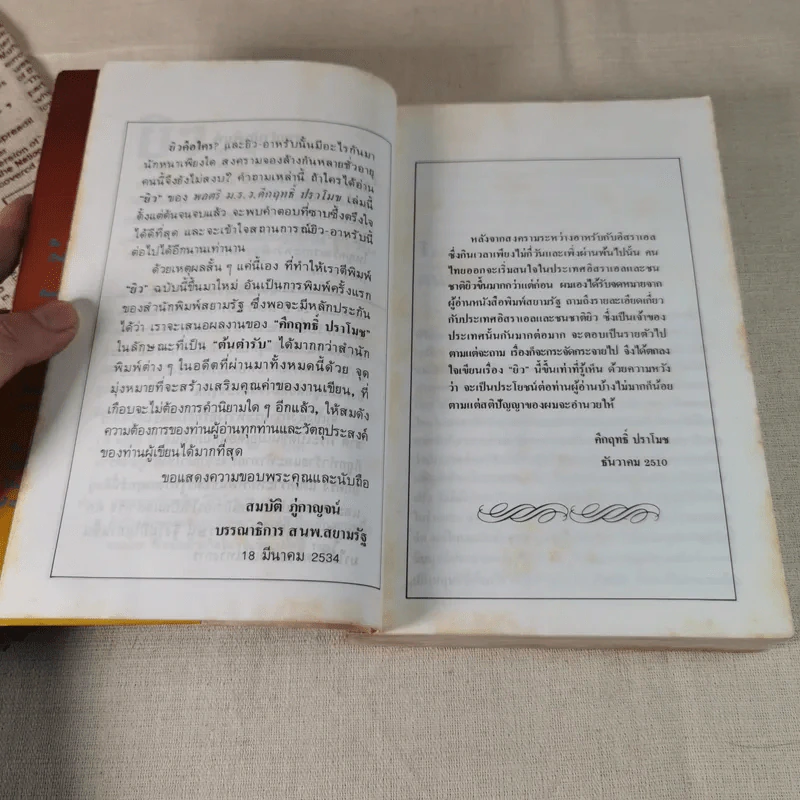 ยิวคือใคร? และยิว-อาหรับนั้นมีอะไรกันมา
นักหนาเพียงใด สงครามจองล้างกันหลายชั่วอายุ
คนนี้จึงยังไม่สงบ? คำถามเหล่านี้ ถ้าใครได้อ่าน
"ยิว" ของ พลตรี ม.ร.ว.คึกฤทธิ์ ปราโมช เล่มนี้
ตั้งแต่ต้นจนจบแล้ว จะพบคำตอบที่ซาบซึ้งตรึงใจ
ได้ดีที่สุด และจะเข้าใจสถานการณ์ยิว-อาหรับนี้
ต่อไปได้อีกนานเท่านาน
ด้วยเหตุผลสั้น ๆ แค่นี้เอง ที่ทำให้เราตีพิมพ์
"ยิว" ฉบับนี้ขึ้นมาใหม่ อันเป็นการพิมพ์ครั้งแรก
ของสำนักพิมพ์สยามรัฐ ซึ่งพอจะมีหลักประกัน
ได้ว่า เราจะเสนอผลงานของ "คึกฤทธิ์ ปราโมช"
ในลักษณะที่เป็น "ต้นตำรับ" ได้มากกว่าสำนัก
พิมพ์ต่าง ๆ ในอดีตที่ผ่านมาทั้งหมดนี้ด้วย จุด
มุ่งหมายที่จะสร้างเสริมคุณค่าของงานเขียน, ที่
เกือบจะไม่ต้องการคำนิยามใด ๆ อีกแล้ว, ให้สมดัง
ความต้องการของท่านผู้อ่านทุกท่านและวัตถุประสงค์
ของท่านผู้เขียนได้มากที่สุด
ขอแสดงความขอบพระคุณและนับถือ
สมบัติ ภู่กาญจน์
บรรณาธิการ สนพ.สยามรัฐ
18 มีนาคม 2534
หลังจากสงครามระหว่างอาหรับกับอิสราเอล
ซึ่งกินเวลาเพียงไม่กี่วันและเพิ่งผ่านพ้นไปนั้น คน
ไทยออกจะเริ่มสนใจในประเทศอิสราเอลและชน
ชาติยิวขึ้นมากกว่าแต่ก่อน ผมเองได้รับจดหมายจาก
ผู้อ่านหนังสือพิมพ์สยามรัฐ ถามถึงรายละเอียดเกี่ยว
กับประเทศอิสราเอลและชนชาติยิว ซึ่งเป็นเจ้าของ
ประเทศนั้นกันมากต่อมาก จะตอบเป็นรายตัวไป
ตามแต่จะถาม เรื่องก็จะกระจัดกระจายไป จึงได้ตกลง
ใจเขียนเรื่อง "ยิว" นี้ขึ้นเท่าที่รู้เห็น ด้วยความหวัง
ว่า จะเป็นประโยชน์ต่อท่านผู้อ่านบ้างไม่มากก็น้อย
ตามแต่สติปัญญาของผมจะอำนวยให้
คึกฤทธิ์ ปราโมช
ธันวาคม 2510